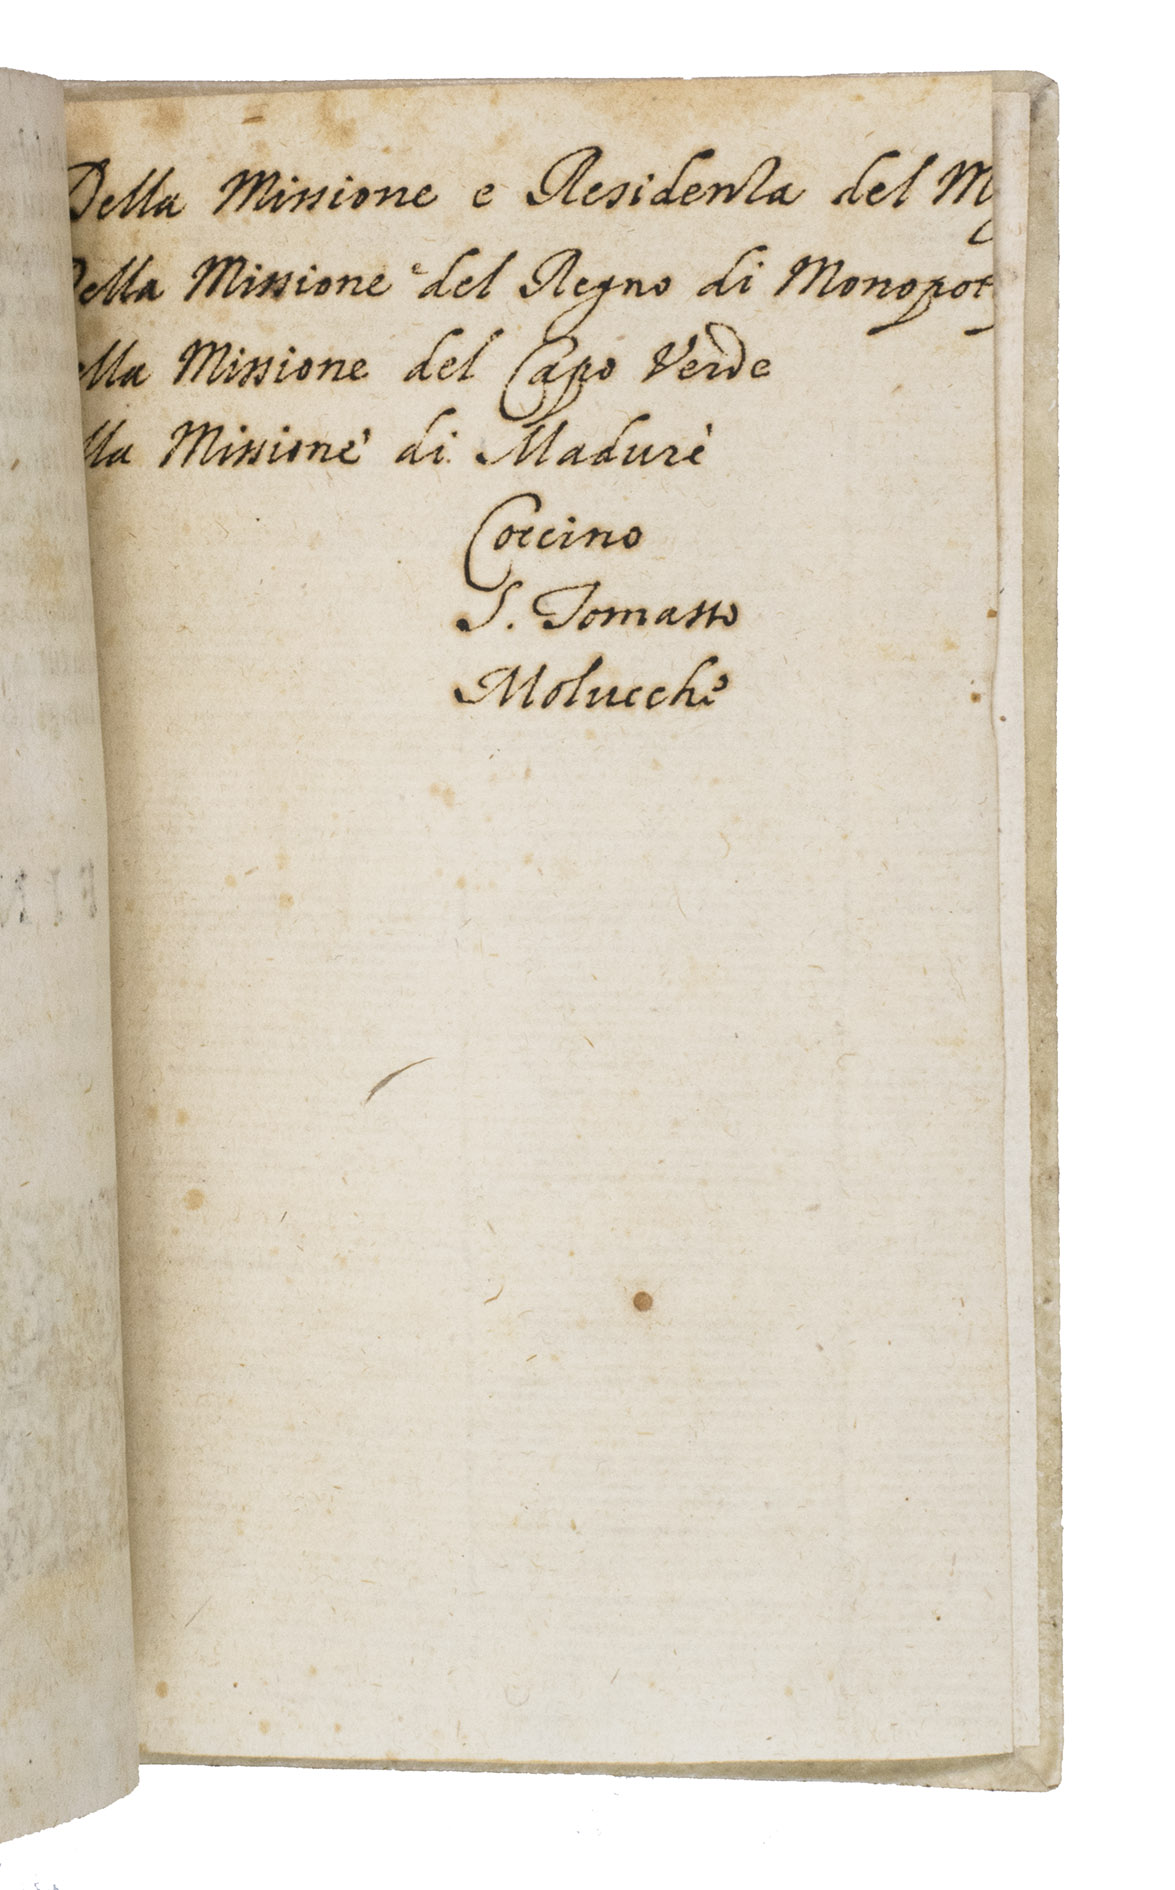 Della Missione e Residenza del M
Della Missione e del Regno di Monopot
ella Missione del Capo Verde
lla Missione di Madurè
Coccino
S. Tomasso
Molucche